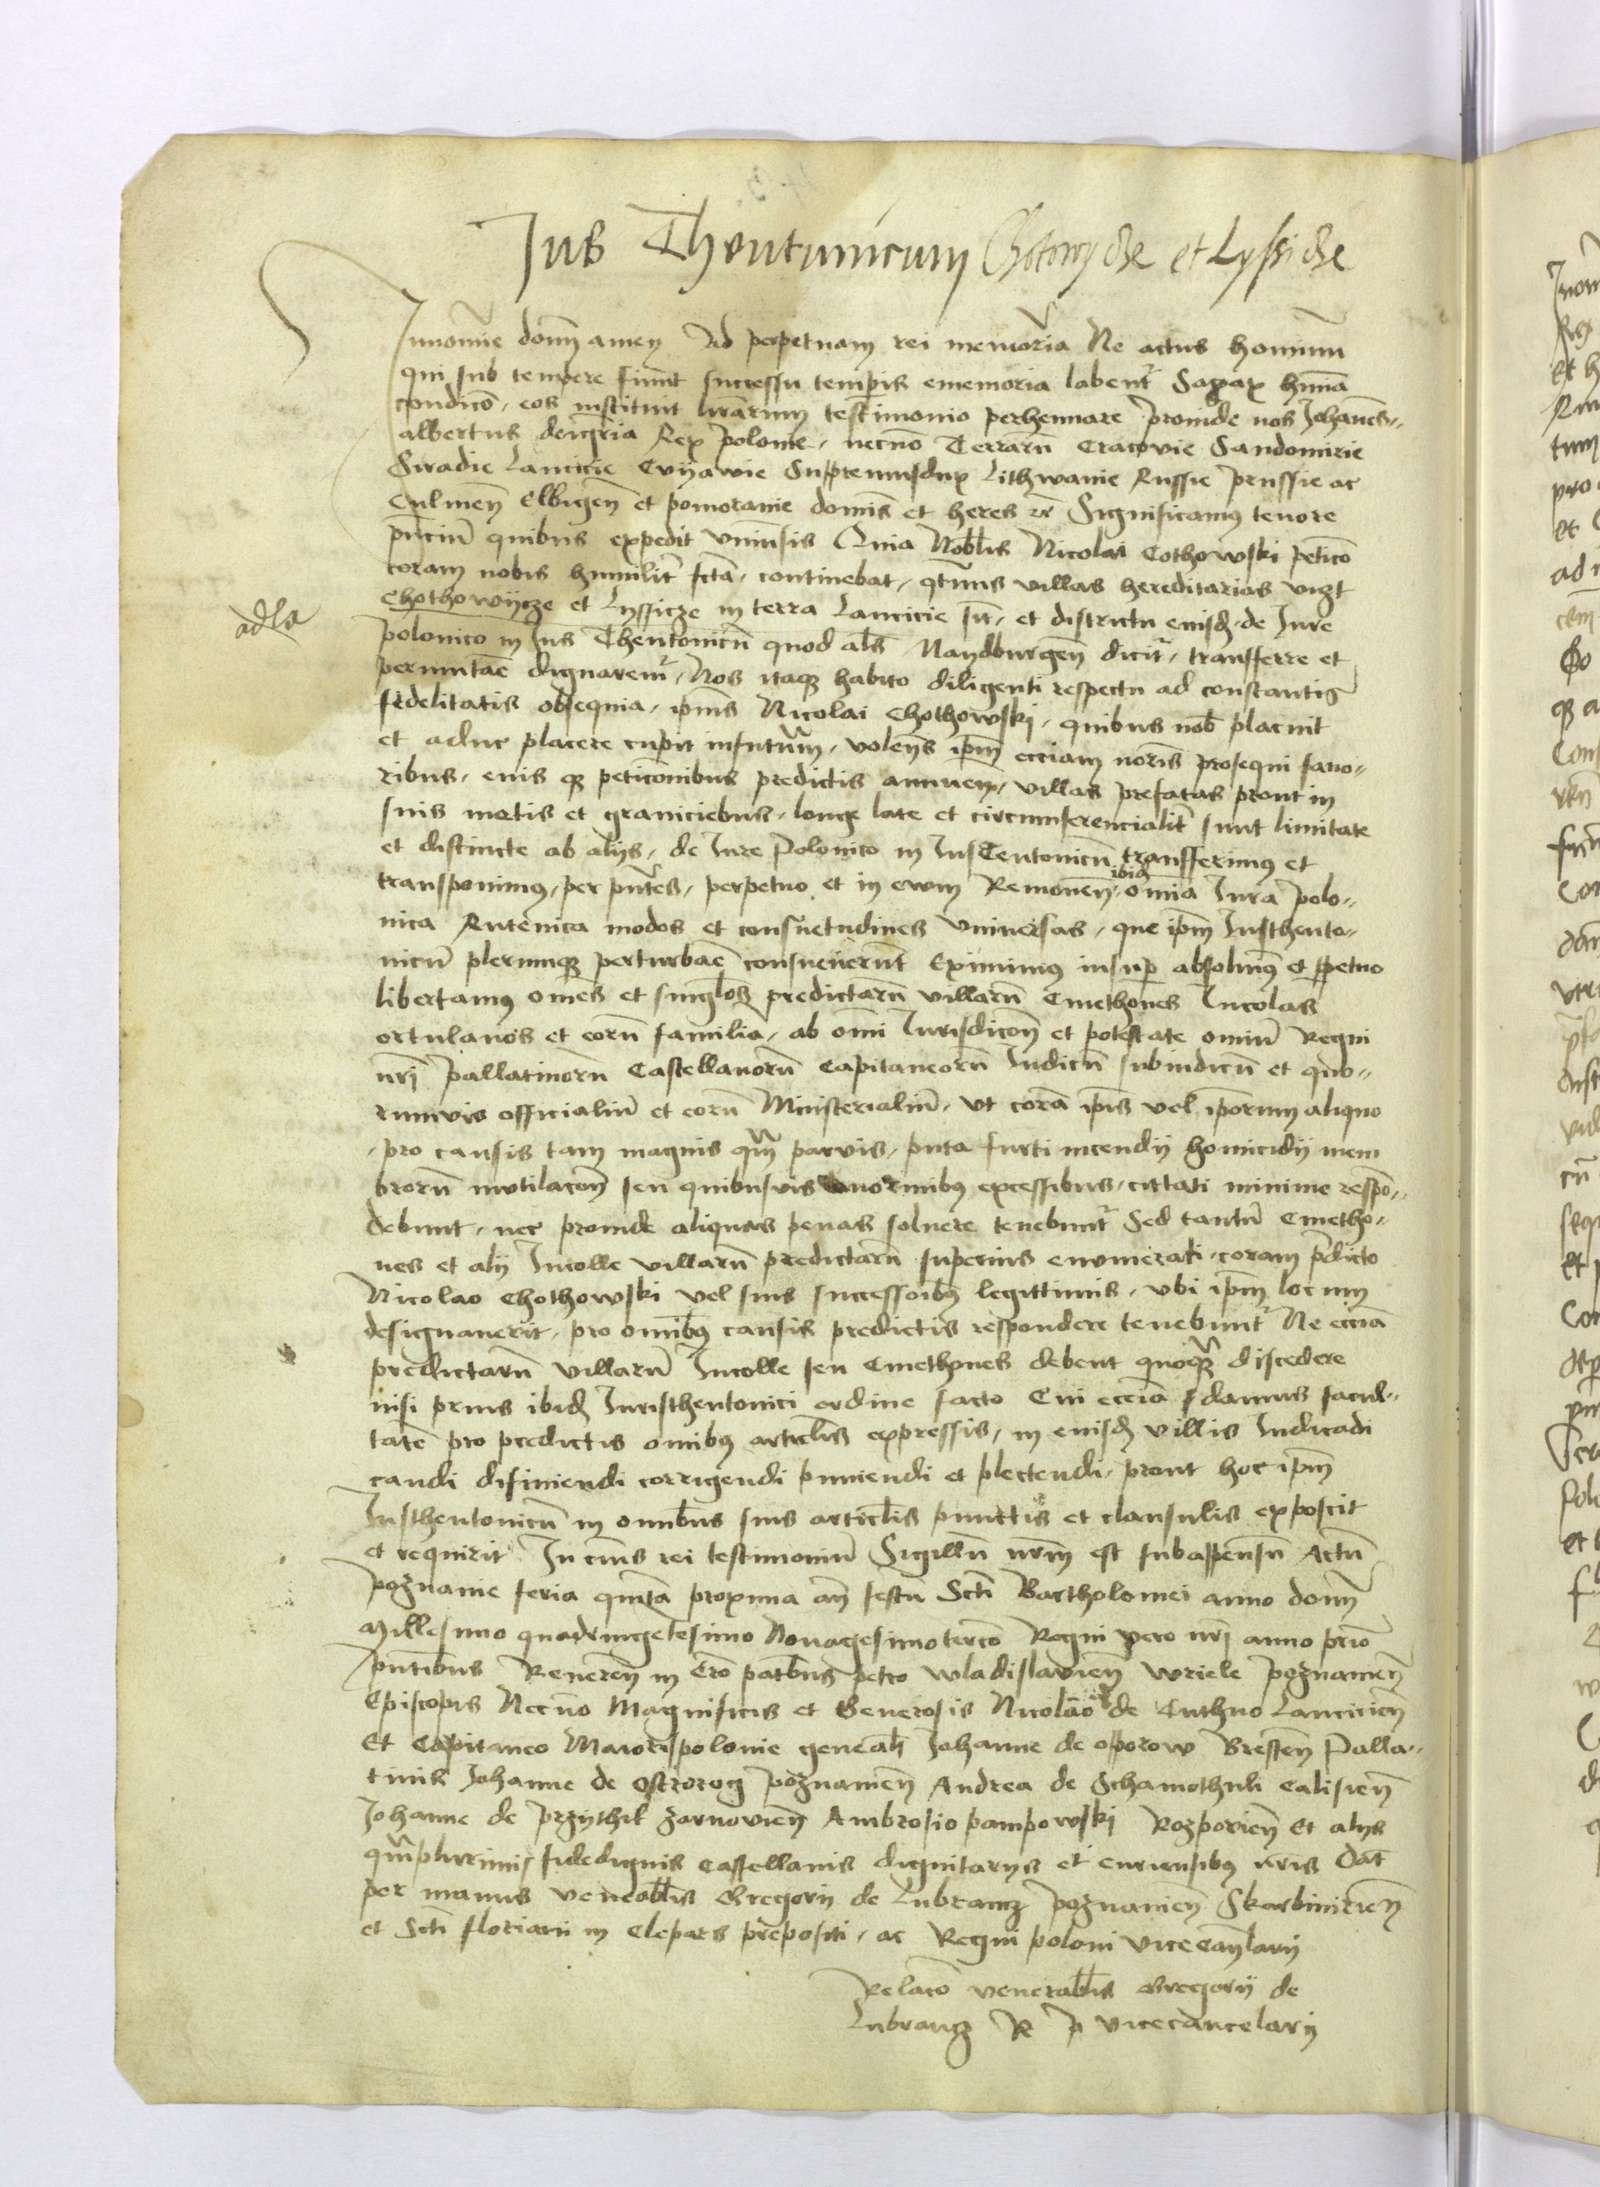 Jus Theutunicum Chotowycze et Lyssicze
In nomine domi amen Ad perpetuam rei memoria Ne actus hominu
qui sub tempore fiunt successu temporis e memoria labent Sagax humana
condico, eos instituit lrarum testimonio perhennare Proinde nos Johanes
albertus dei gria Rex polonie, necno Terraru Cracovie Sandomirie
Siradie Lancicie Cuyavie Supremusdux Lithwanie Russie Prussie ac
Culmen Elbigen et pomoranie domis et heres Significamus tenore
pncium quibus expedit vniuersis Quia Nobilis Nicolai Cothowski petico
coram nobis humilit fcta, continebat, qtenus villas hereditarias
Chothowycze et Lyssicze in terra Lancicie et districtu eiusd de Jure
adla
polonico in Jus Theutonicu quod als Maydburgen dicit, transferre et
permutae dignarem, Nos itaque habito diligenti respectu ad constantis
fidelitatis obsequia, ipius Nicolai Chothowski, quibus nob placuit
et aduc placere cupit infuturum, volens ipm ecciam noris prosequi favo-
ribus, eius que peticonibus predictis annuen, villas prefatas prout in
suis metis et graniciebus, longe late et circumferencialit sunt limitate
et distincte ab alys, de Jure Polonico in Jus Teutonicu transferimus et
transponimus, per pntes, perpetuo et in ewm Remouen ibid omia Jura polo-
nica Rutenica modos et consuetudines vniuersas, que ipm Justheuto-
nicu plerumque perturbae consueuerunt Eximimus insup absoluimus et perpetuo
libertamus omes et singlos predictaru villaru Cmethones Incolas
ortulanos et eoru familia, ab omi Jurisdicon et potestate omiu Regni
nri Pallatinoru Castellanoru Capitaneoru Iudicu subiudicu et quo-
rumvis officialiu et eoru Ministerialiu, vt cora ipis vel iporum aliquo
pro causis tam magnis qm parvis, puta furti incendy homicidy mem
broru mutilacon seu quibusvis enormibus excessibus, cittati minime respo-
debunt, nec proinde aliquas penas soluere tenebunt Sed tantu Cmetho-
nes et aly Incolle villaru predictaru superius enumerati, coram pdicto
Nicolao Chothowski vel suis successoribus legittimis, vbi ipm locum
designauerit, pro omibus causis predictis respondere tenebunt Ne eccia
predictaru villaru Incolle seu Cmethones debent quoque discedere
nisi prius ibid Juristheutonici ordine facto Cui eccia damus facul-
tate pro predictis omibus articlis expressis, in eiusd villis Iudicadi
candi difiniendi corrigendi puniendi et plectendi, prout hoc ipm
Justheutonicu in omibus suis articlis punctis et clausulis exposcit
et requirit In cuius rei testimoniu Sigillu nrm est subappensu Actu
Poznanie feria quinta proxima an festu Scti Bartholomei anno domi
Millesimo quadringetesimo Nonagesimotercio Regni vero nri anno prio
pntibus Reueren in Cro patribus petro wladislavien Vriele Poznanien
Episcopis Necno Magnificis et Generosis Nicolao de Cuthno Lancicien
Et Capitaneo Maioris polonie generali Johanne de oporow Bresten Palla-
tinis Johanne de Ostrorog Poznanien Andrea de Schamothuli Calisien
Johanne de Przythik Zarnovien Ambrosio pampowski Rozporien Et alys
qm plurimis fidedignis Castellanis dignitarys et curiensibus nris Dat
per manus venerabilis Gregory de Lubrancz Poznanien Skarbimirien
et Scti floriani in Cleparz prepositi, ac Regni poloni vicecancelary
Relaco venerabilis Gregory de
Lubrancz R P vicecancelary